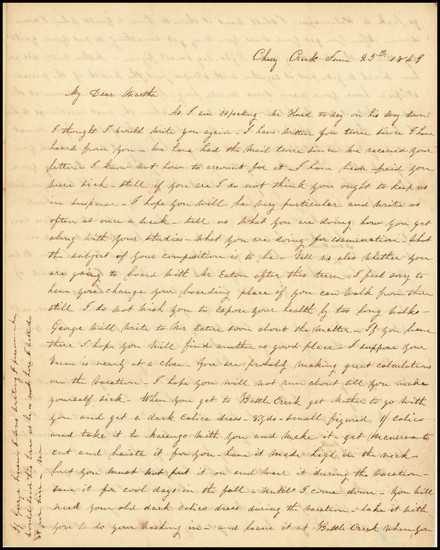 Creek June 25th 1849
My Dear Martha
As I am expecting Mr Hurd to day on his way down
I thought I would write you again. I have written you twice since I have
heard from you - we have had the mail twice since we received your
letter I know not how to account for it I have been afraid you
were sick still if you are I do not think you ought to keep us
in suspense - I hope you will be very particular and write as
often as once a week - tell us what you are doing how you get
along with your studies - what you are doing for examination - What
the subject of your composition is to be - Tell us also whether you
are going to board with Mr Eaton after this term - I feel sorry to
have you change your boarding place if you can walk from there
still I do not wish you to expose your health by too long walks -
George will write to Mr Eaton soon about the matter - If you leave
there I hope you will find another as good place - I suppose your
term is nearly at a close - You are probably making great calculations
on the vacation - I hope you will not run about till you make
yourself sick - When you get to Battle Creek get Mother to go with
you and get a dark calico dress - yds - small figured. If calico
and take it to Marengo with you and make it - get to
cut and baiste it for you - have it made high in the neck -
but you must not put it on and wear it during the vacation -
save it for cool days in the fall - untill I come down - You will
need your old dark calico dress during the vacation - take it with
you to do your washing in - and leave it at Battle Creek when you